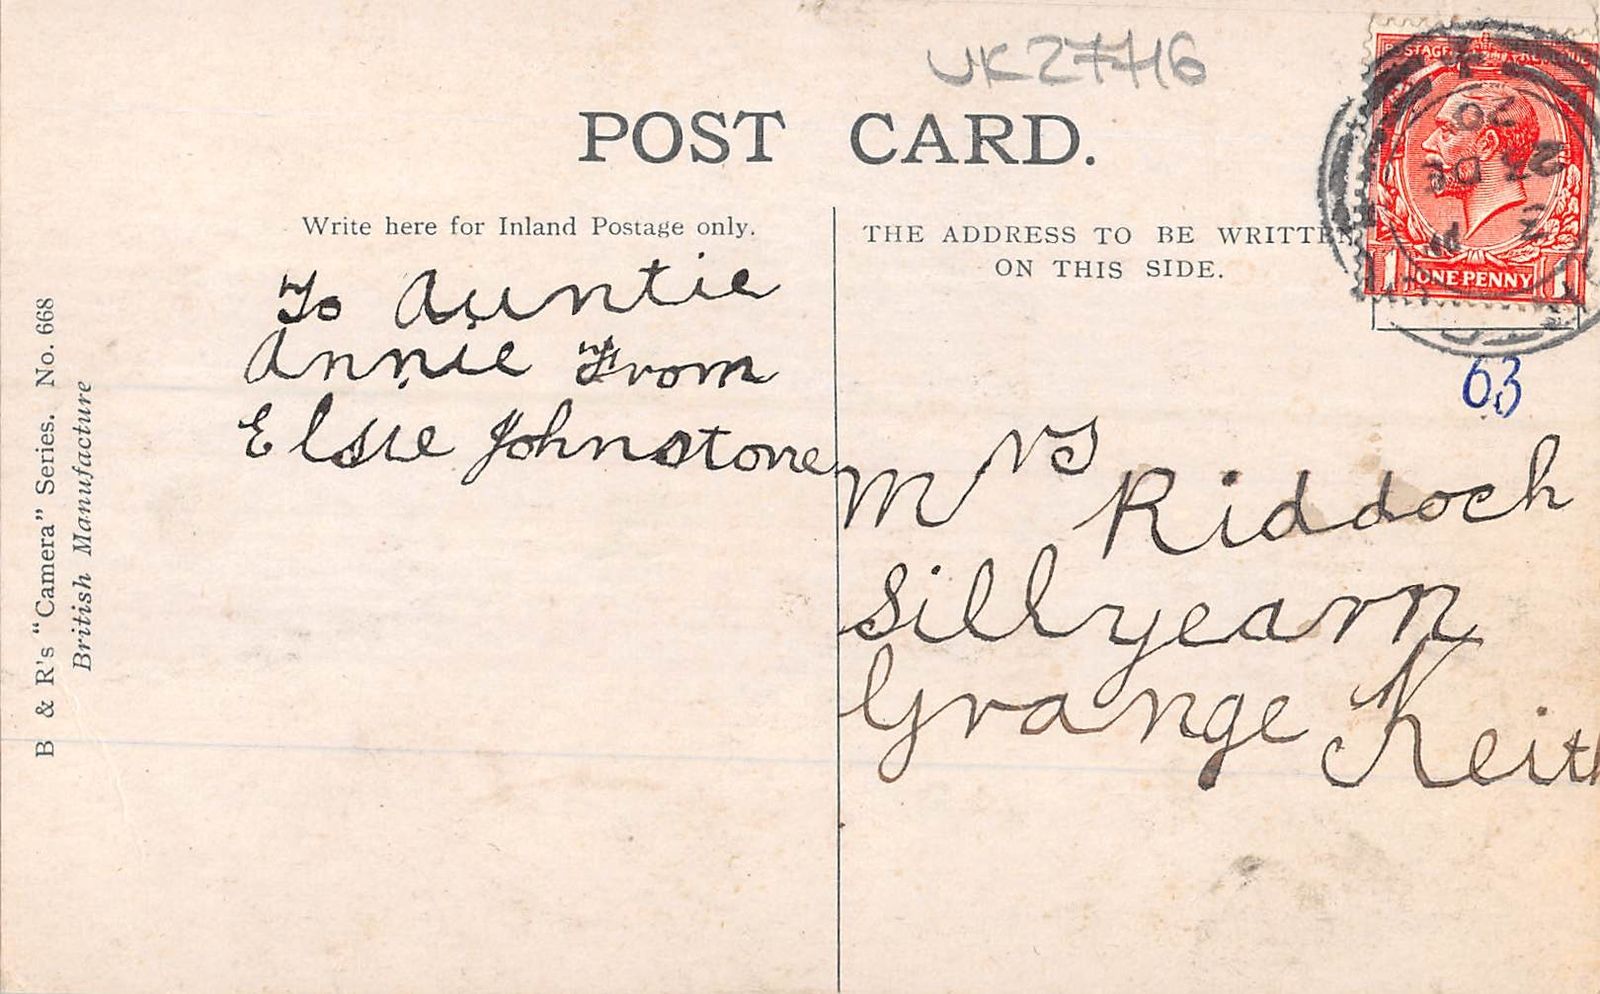 UK27716
POST CARD.
Write here for Inland Postage only.
To Auntie
Annie From
Elsie Johnstone
THE ADDRESS TO BE WRITTEN
ON THIS SIDE.
POSTAGE REVENUE
1 ONE PENNY 1
63
Mrs Riddoch
Sillyearn
Grange Keith
B & R's "Camera" Series. No. 668
British Manufacture